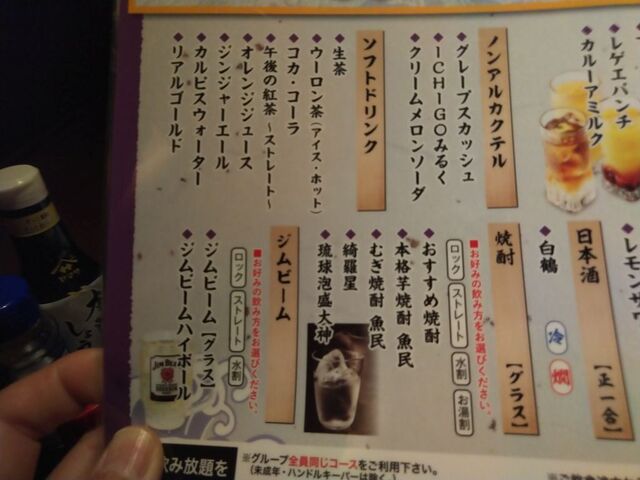 レゲエパンチ
カルーアミルク
ノンアルカクテル
グレープスカッシュ
ICHIGOみるく
クリームメロンソーダ
ソフトドリンク
生茶
ウーロン茶(アイス・ホット)
コカ・コーラ
午後の紅茶 ～ストレート～
オレンジジュース
ジンジャーエール
カルピスウォーター
リアルゴールド
日本酒 【正一合】
白鶴 冷 燗
焼酎 【グラス】
■お好みの飲み方をお選びください。
ロック ストレート 水割 お湯割
おすすめ焼酎
本格芋焼酎 魚民
むぎ焼酎 魚民
綺羅星
琉球泡盛大神
ジムビーム
■お好みの飲み方をお選びください。
ロック ストレート 水割
ジムビーム【グラス】
ジムビームハイボール
JIM BEAM
飲み放題を
※グループ全員同じコースをご利用下さい。
(未成年・ハンドルキーパーは除く。)